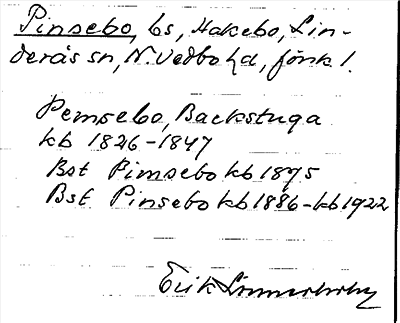 Pinsebo, ls, Hakebo, Lin-
derås sn, N. Vedbo hd, Jönk l.
Pemsebo, Backstuga
kb 1826-1847
Bst Pimsebo kb 1875
Bst Pinsebo kb 1886-kb 1922
Erik